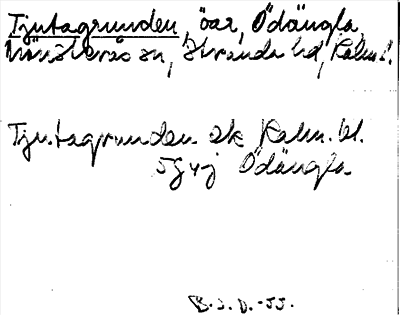 Tjutagrunden, öar, Ödängla,
Mönsterås sn, Stranda hd, Kalm. l.
Tjutagrunden ek Kalm. bl.
5G4j Ödängla
B. J. D. -55.